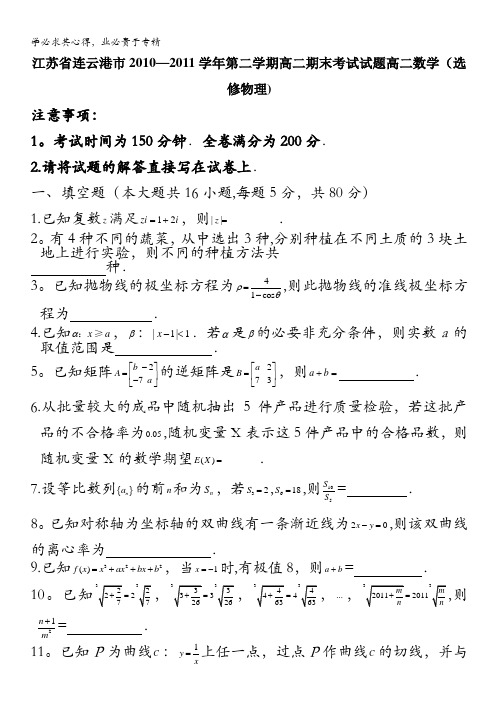 学必求其心得，业必贵于专精
江苏省连云港市2010—2011学年第二学期高二期末考试试题高二数学（选
修物理)
注意事项：
1。考试时间为150分钟．全卷满分为200分．
2.请将试题的解答直接写在试卷上．
一、填空题（本大题共16小题,每题5分，共80分）
1.已知复数z满足zi=1+2i，则|z|=________．
2。有4种不同的蔬菜，从中选出3种,分别种植在不同土质的3块土
地上进行实验，则不同的种植方法共
________种．
3。已知抛物线的极坐标方程为ρ=4/(1-cosθ),则此抛物线的准线极坐标方
程为________．
4.已知α：x≥a，β：|x-1|<1．若α是β的必要非充分条件，则实数a的
取值范围是________．
5。已知矩阵A=[b -2; -7 a]的逆矩阵是B=[a 2; 7 3]，则a+b=________．
6.从批量较大的成品中随机抽出5件产品进行质量检验，若这批产
品的不合格率为0.05,随机变量X表示这5件产品中的合格品数，则
随机变量X的数学期望E(X)=________．
7.设等比数列{aₙ}的前n和为Sₙ，若S₃=2,S₆=18,则S₁₀/S₅=________．
8。已知对称轴为坐标轴的双曲线有一条渐近线为2x-y=0,则该双曲线
的离心率为________．
9.已知f(x)=x³+ax²+bx+b²，当x=-1时,有极值8，则a+b=________．
10。已知∛(2+2/7)=2∛(2/7)，∛(3+3/26)=3∛(3/26)，∛(4+4/63)=4∛(4/63)，…，∛(2011+m/n)=2011∛(m/n),则
(n+1)/m²=________．
11。已知P为曲线c：y=1/x上任一点，过点P作曲线c的切线，并与